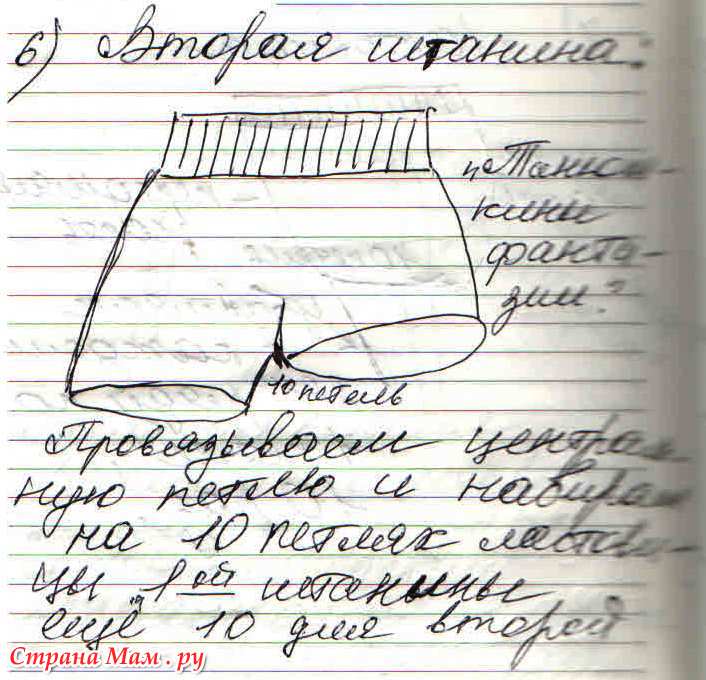 6) Вторая штанина:
„Танюш-
кины
фанта-
зии."
10 петель
Провязываем централь
ную петлю и набирая
на 10 петлях ластови-
цы 1ой штанины
ещё 10 для второй
Страна Мам.ру